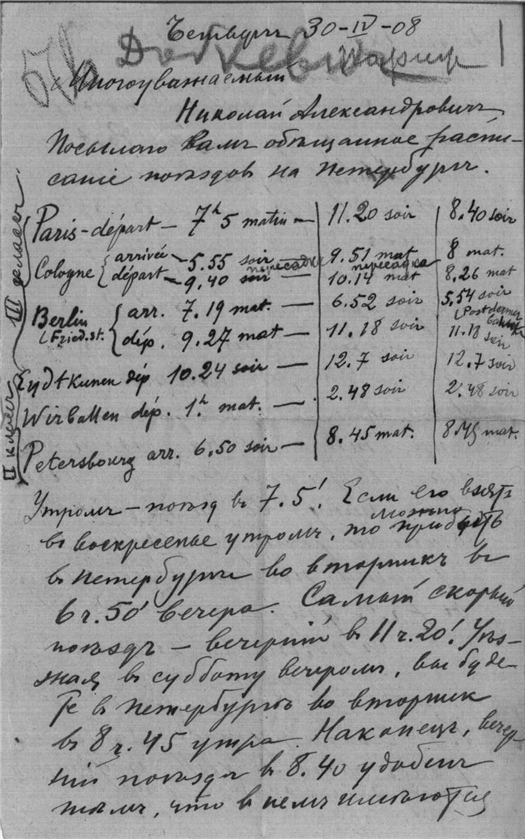 Четвергъ 30-IV-08
Парижъ
Многоуважаемый
Николай Александровичъ
Посылаю Вамъ обѣщанное распи-
саніе поѣздовъ на Петербургъ.
Paris-départ — 7h 5 matin — 11.20 soir 8.40 soir
Cologne arrivée — 5.55 soir пересадка 9.51 mat. пересадка 8 mat.
départ — 9.40 soir — 10.14 mat 8.26 mat
Berlin arr. 7.19 mat. — 6.52 soir 5.54 soir
Fried.st. dép. 9.27 mat — 11.18 soir 11.18 soir
Eydtkunen dép 10.24 soir — 12.7 soir 12.7 soir
Wirballen dép. 1h mat. — 2.48 soir 2.48 soir
Petersbourg arr. 6.50 soir — 8.45 mat. 8.45 mat.
III классъ
II классъ
Утромъ — поѣзд въ 7.5'! Если его взять
въ воскресенье утромъ, то можно прибыть
въ Петербургъ во вторникъ въ
6 ч. 50' вечера. Самый скорый
поѣздъ — вечерній въ 11 ч. 20'! Уѣз-
жая въ субботу вечеромъ, вы буде-
те въ Петербургѣ во вторник
въ 8 ч. 45 утра. Наконецъ, вечер-
ній поѣздъ въ 8.40 удобенъ
тѣмъ, что въ немъ имѣются